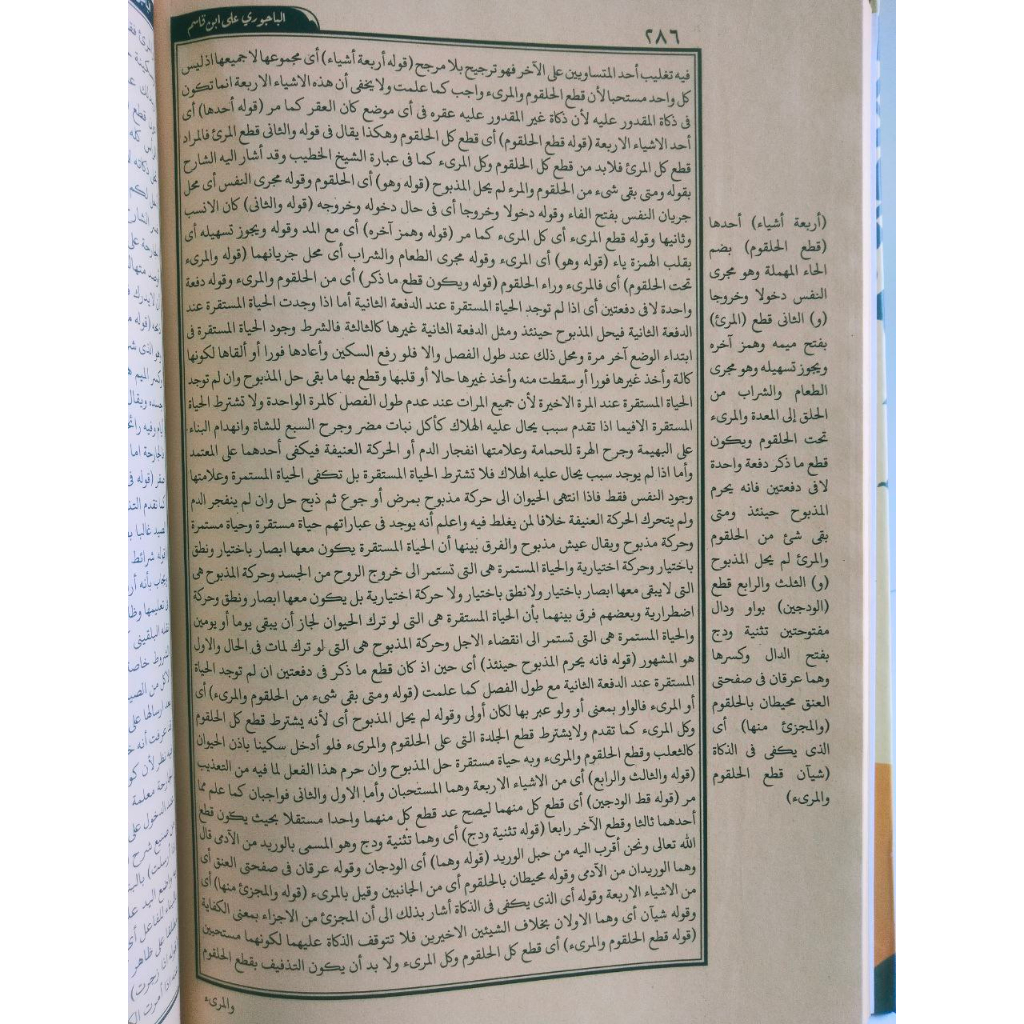 الباجوري على ابن قاسم
٢٨٦
فيه تغليب أحد المتساويين على الآخر فهو ترجيح بلا مرجح (قوله أربعة أشياء) أى مجموعها لا جميعها اذ ليس
كل واحد مستحبا لأن قطع الحلقوم والمرىء واجب كما علمت ولا يخفى أن هذه الاشياء الاربعة انما تكون
فى ذكاة المقدور عليه لأن ذكاة غير المقدور عليه عقره فى أى موضع كان العقر كما مر (قوله أحدها) أى
أحد الاشياء الاربعة (قوله قطع الحلقوم) أى قطع كل الحلقوم وهكذا يقال فى قوله والثانى قطع المرئ فالمراد
قطع كل المرئ فلابد من قطع كل الحلقوم وكل المرىء كما فى عبارة الشيخ الخطيب وقد أشار اليه الشارح
بقوله ومتى بقى شىء من الحلقوم والمرء لم يحل المذبوح (قوله وهو) أى الحلقوم وقوله مجرى النفس أى محل
جريان النفس بفتح الفاء وقوله دخولا وخروجا أى فى حال دخوله وخروجه (قوله والثانى) كان الانسب
وثانيها وقوله قطع المرىء أى كل المرىء كما مر (قوله وهمز آخره) أى مع المد وقوله ويجوز تسهيله أى
بقلب الهمزة ياء (قوله وهو) أى المرىء وقوله مجرى الطعام والشراب أى محل جريانهما (قوله والمرىء
تحت الحلقوم) أى فالمرىء وراء الحلقوم (قوله ويكون قطع ما ذكر) أى من الحلقوم والمرىء وقوله دفعة
واحدة لا فى دفعتين أى اذا لم توجد الحياة المستقرة عند الدفعة الثانية أما اذا وجدت الحياة المستقرة عند
الدفعة الثانية فيحل المذبوح حينئذ ومثل الدفعة الثانية غيرها كالثالثة فالشرط وجود الحياة المستقرة فى
ابتداء الوضع آخر مرة ومحل ذلك عند طول الفصل والا فلو رفع السكين وأعادها فورا أو ألقاها لكونها
كالة وأخذ غيرها فورا أو سقطت منه وأخذ غيرها حالا أو قلبها وقطع بها ما بقى حل المذبوح وان لم توجد
الحياة المستقرة عند المرة الاخيرة لأن جميع المرات عند عدم طول الفصل كالمرة الواحدة ولا تشترط الحياة
المستقرة الافيما اذا تقدم سبب يحال عليه الهلاك كأكل نبات مضر وجرح السبع للشاة وانهدام البناء
على البهيمة وجرح الهرة للحمامة وعلامتها انفجار الدم أو الحركة العنيفة فيكفى أحدهما على المعتمد
وأما اذا لم يوجد سبب يحال عليه الهلاك فلا تشترط الحياة المستقرة بل تكفى الحياة المستمرة وعلامتها
وجود النفس فقط فاذا انتهى الحيوان الى حركة مذبوح بمرض أو جوع ثم ذبح حل وان لم ينفجر الدم
ولم يتحرك الحركة العنيفة خلافا لمن يغلط فيه واعلم أنه يوجد فى عباراتهم حياة مستقرة وحياة مستمرة
وحركة مذبوح ويقال عيش مذبوح والفرق بينها أن الحياة المستقرة يكون معها ابصار باختيار ونطق
باختيار وحركة اختيارية والحياة المستمرة هى التى تستمر الى خروج الروح من الجسد وحركة المذبوح هى
التى لا يبقى معها ابصار باختيار ولا نطق باختيار ولا حركة اختيارية بل يكون معها ابصار ونطق وحركة
اضطرارية وبعضهم فرق بينهما بأن الحياة المستقرة هى التى لو ترك الحيوان لجاز أن يبقى يوما أو يومين
والحياة المستمرة هى التى تستمر الى انقضاء الاجل وحركة المذبوح هى التى لو ترك لمات فى الحال والاول
هو المشهور (قوله فانه يحرم المذبوح حينئذ) أى حين اذ كان قطع ما ذكر فى دفعتين ان لم توجد الحياة
المستقرة عند الدفعة الثانية مع طول الفصل كما علمت (قوله ومتى بقى شىء من الحلقوم والمرىء) أى
أو المرىء فالواو بمعنى أو ولو عبر بها لكان أولى وقوله لم يحل المذبوح أى لأنه يشترط قطع كل الحلقوم
وكل المرىء كما تقدم ولا يشترط قطع الجلدة التى على الحلقوم والمرىء فلو أدخل سكينا باذن الحيوان
كالثعلب وقطع الحلقوم والمرىء وبه حياة مستقرة حل المذبوح وان حرم هذا الفعل لما فيه من التعذيب
(قوله والثالث والرابع) أى من الاشياء الاربعة وهما المستحبان وأما الاول والثانى فواجبان كما علم مما
مر (قوله قط الودجين) أى قطع كل منهما ليصح عد قطع كل منهما واحدا مستقلا بحيث يكون قطع
أحدهما ثالثا وقطع الآخر رابعا (قوله تثنية ودج) أى وهما تثنية ودج وهو المسمى بالوريد من الآدمى قال
الله تعالى ونحن أقرب اليه من حبل الوريد (قوله وهما) أى الودجان وقوله عرقان فى صفحتى العنق أى
وهما الوريدان من الآدمى وقوله محيطان بالحلقوم أى من الجانبين وقيل بالمرىء (قوله والمجزئ منها) أى
من الاشياء الاربعة وقوله أى الذى يكفى فى الذكاة أشار بذلك الى أن المجزئ من الاجزاء بمعنى الكفاية
وقوله شيآن أى وهما الاولان بخلاف الشيئين الاخيرين فلا تتوقف الذكاة عليهما لكونهما مستحبين
(قوله قطع الحلقوم والمرىء) أى قطع كل الحلقوم وكل المرىء ولا بد أن يكون التذفيف بقطع الحلقوم
والمرىء
(أربعة أشياء) أحدها
(قطع الحلقوم) بضم
الحاء المهملة وهو مجرى
النفس دخولا وخروجا
(و) الثانى قطع (المرئ)
بفتح ميمه وهمز آخره
ويجوز تسهيله وهو مجرى
الطعام والشراب من
الحلق إلى المعدة والمرىء
تحت الحلقوم ويكون
قطع ما ذكر دفعة واحدة
لا فى دفعتين فانه يحرم
المذبوح حينئذ ومتى
بقى شئ من الحلقوم
والمرئ لم يحل المذبوح
(و) الثلث والرابع قطع
(الودجين) بواو ودال
مفتوحتين تثنية ودج
بفتح الدال وكسرها
وهما عرقان فى صفحتى
العنق محيطان بالحلقوم
(والمجزئ منها) أى
الذى يكفى فى الذكاة
(شيآن قطع الحلقوم
والمرىء)